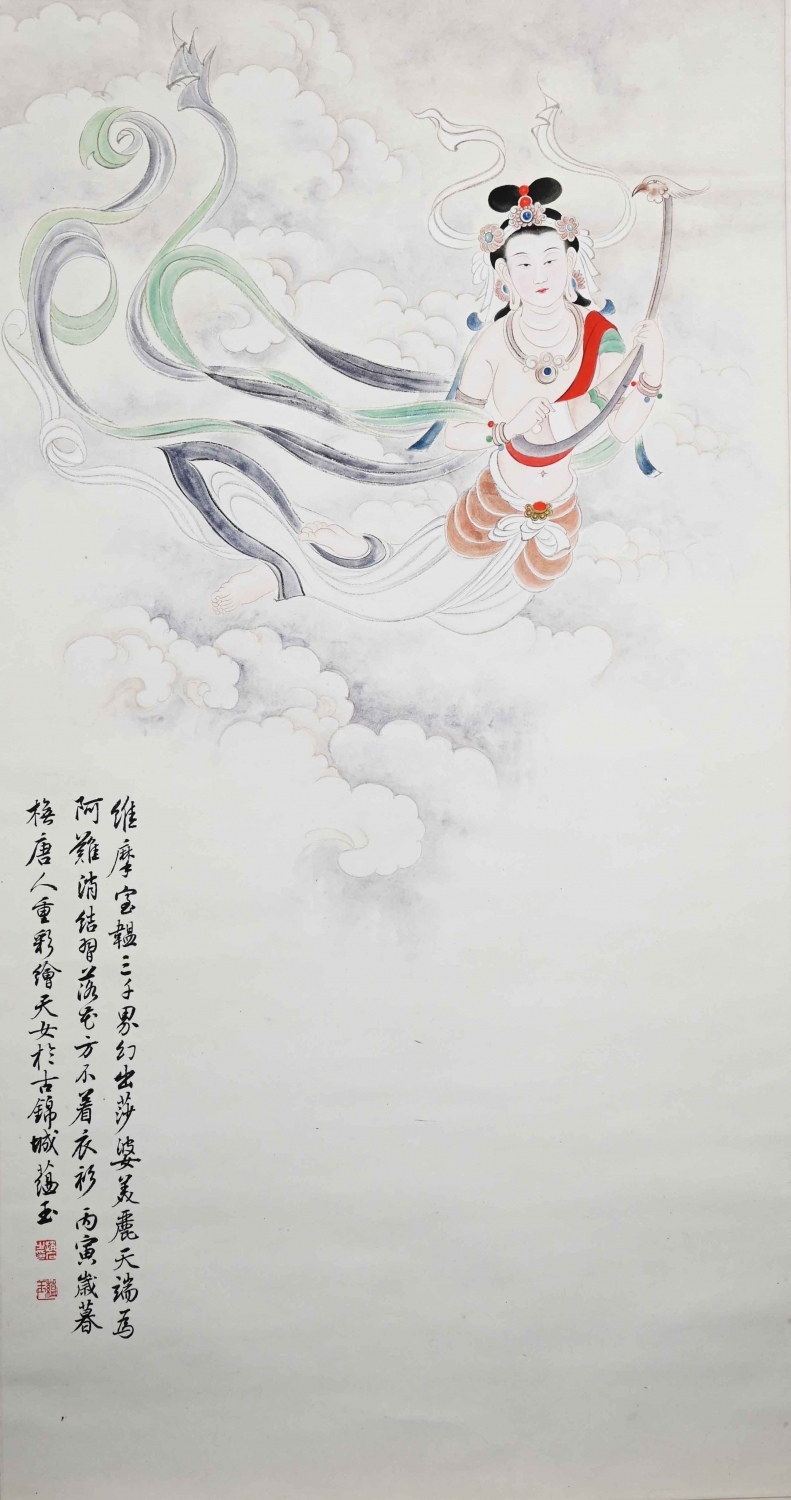 維摩室韞三千界幻出莎婆美麗天端為
阿難消結習落花方不着衣衫丙寅歲暮
橅唐人重彩繪天女於古錦城蘊玉